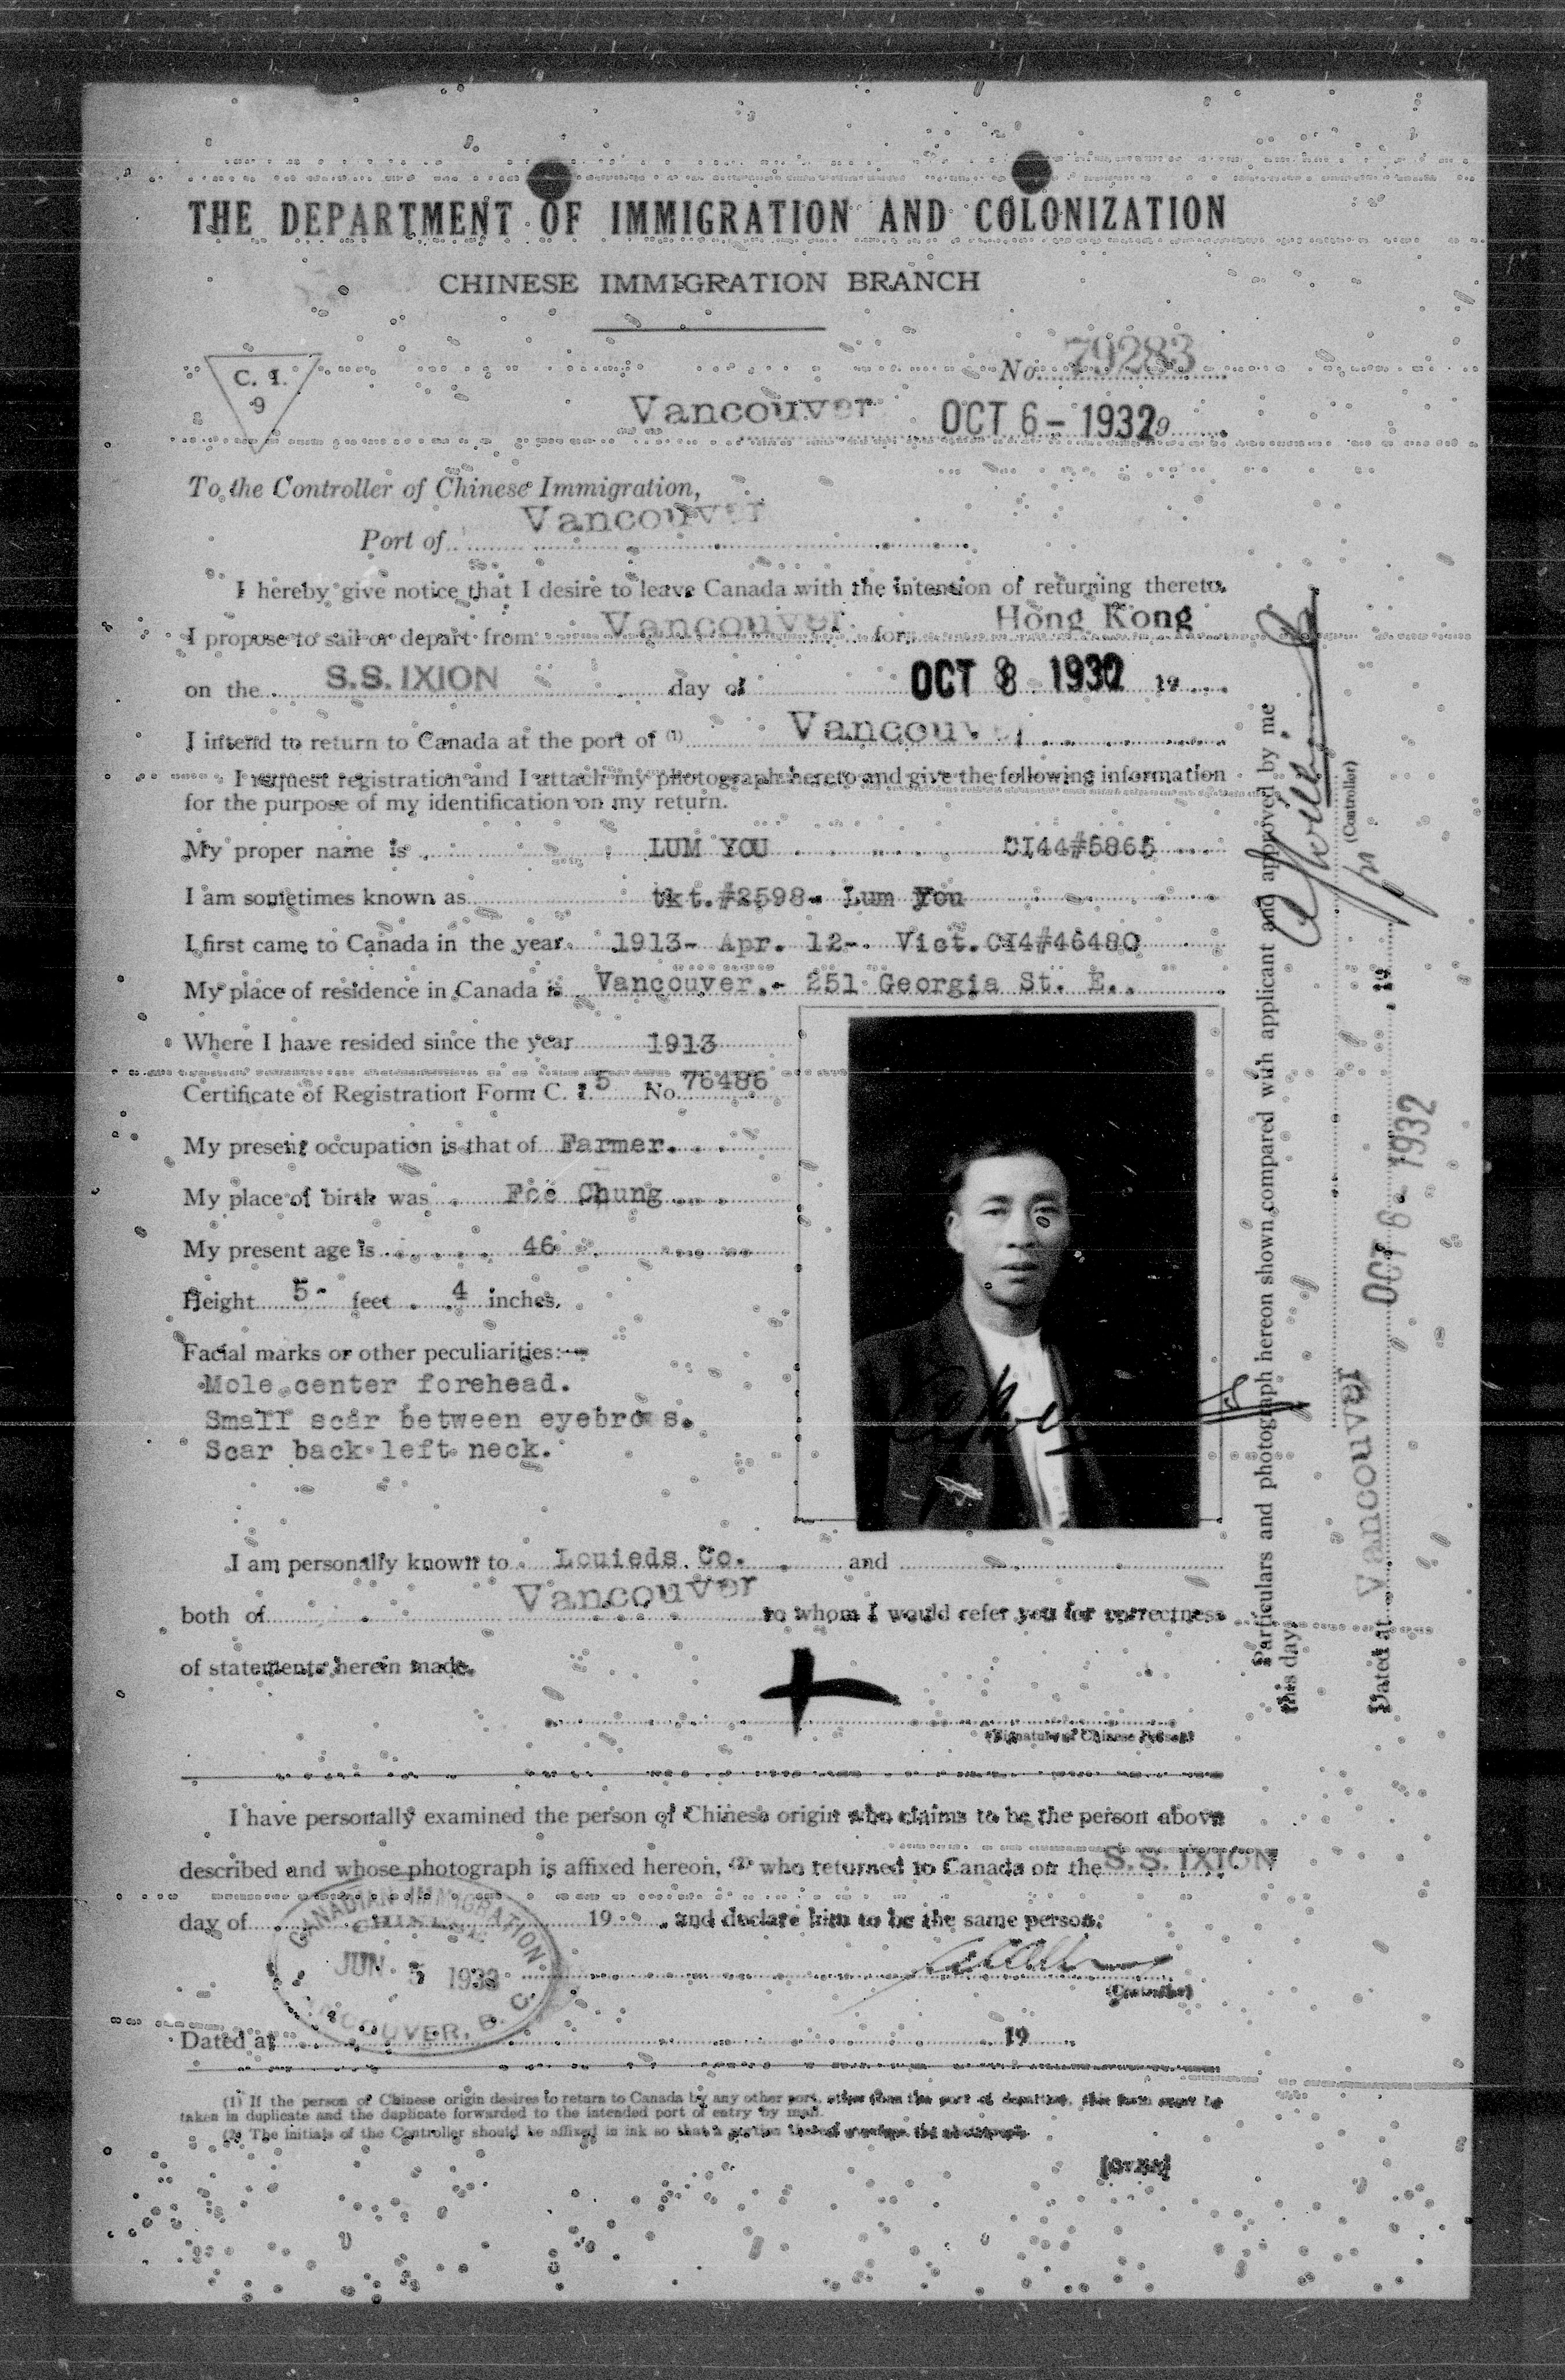 THE DEPARTMENT OF IMMIGRATION AND COLONIZATION
CHINESE IMMIGRATION BRANCH
C. I.
9
No. 79283
Vancouver OCT 6 - 1932 19
To the Controller of Chinese Immigration,
Port of Vancouver
I hereby give notice that I desire to leave Canada with the intention of returning thereto.
I propose to sail or depart from Vancouver for Hong Kong
on the S.S. IXION day of OCT 8 1932 19
I intend to return to Canada at the port of (1) Vancouver
I request registration and I attach my photograph hereto and give the following information
for the purpose of my identification on my return.
My proper name is LUM YOU CI44#5865
I am sometimes known as tkt.#2598- Lum You
I first came to Canada in the year 1913- Apr. 12-. Vict.CI4#46480
My place of residence in Canada is Vancouver.- 251 Georgia St. E.
Where I have resided since the year 1913
Certificate of Registration Form C. I. 5 No. 76486
My present occupation is that of Farmer.
My place of birth was Foo Chung
My present age is 46
Height 5- feet 4 inches.
Facial marks or other peculiarities:—
Mole center forehead.
Small scar between eyebrows.
Scar back left neck.
I am personally known to Louieds Co. and
both of Vancouver to whom I would refer you for correctness
of statements herein made.
(Signature of Chinese Person)
I have personally examined the person of Chinese origin who claims to be the person above
described and whose photograph is affixed hereon, (2) who returned to Canada on the S.S. IXION
day of 19 , and declare him to be the same person.
CANADIAN IMMIGRATION
CHINESE
JUN. 5 1933
VANCOUVER, B. C.
(Controller)
Dated at 19
(1) If the person of Chinese origin desires to return to Canada by any other port, other than the port of departure, this form must be
taken in duplicate and the duplicate forwarded to the intended port of entry by mail.
(2) The initials of the Controller should be affixed in ink so that a portion thereof overlaps the photograph.
[OVER]
Particulars and photograph hereon shown compared with applicant and approved by me
this day.
(Controller)
Dated at Vancouver OCT 6 - 1932 19